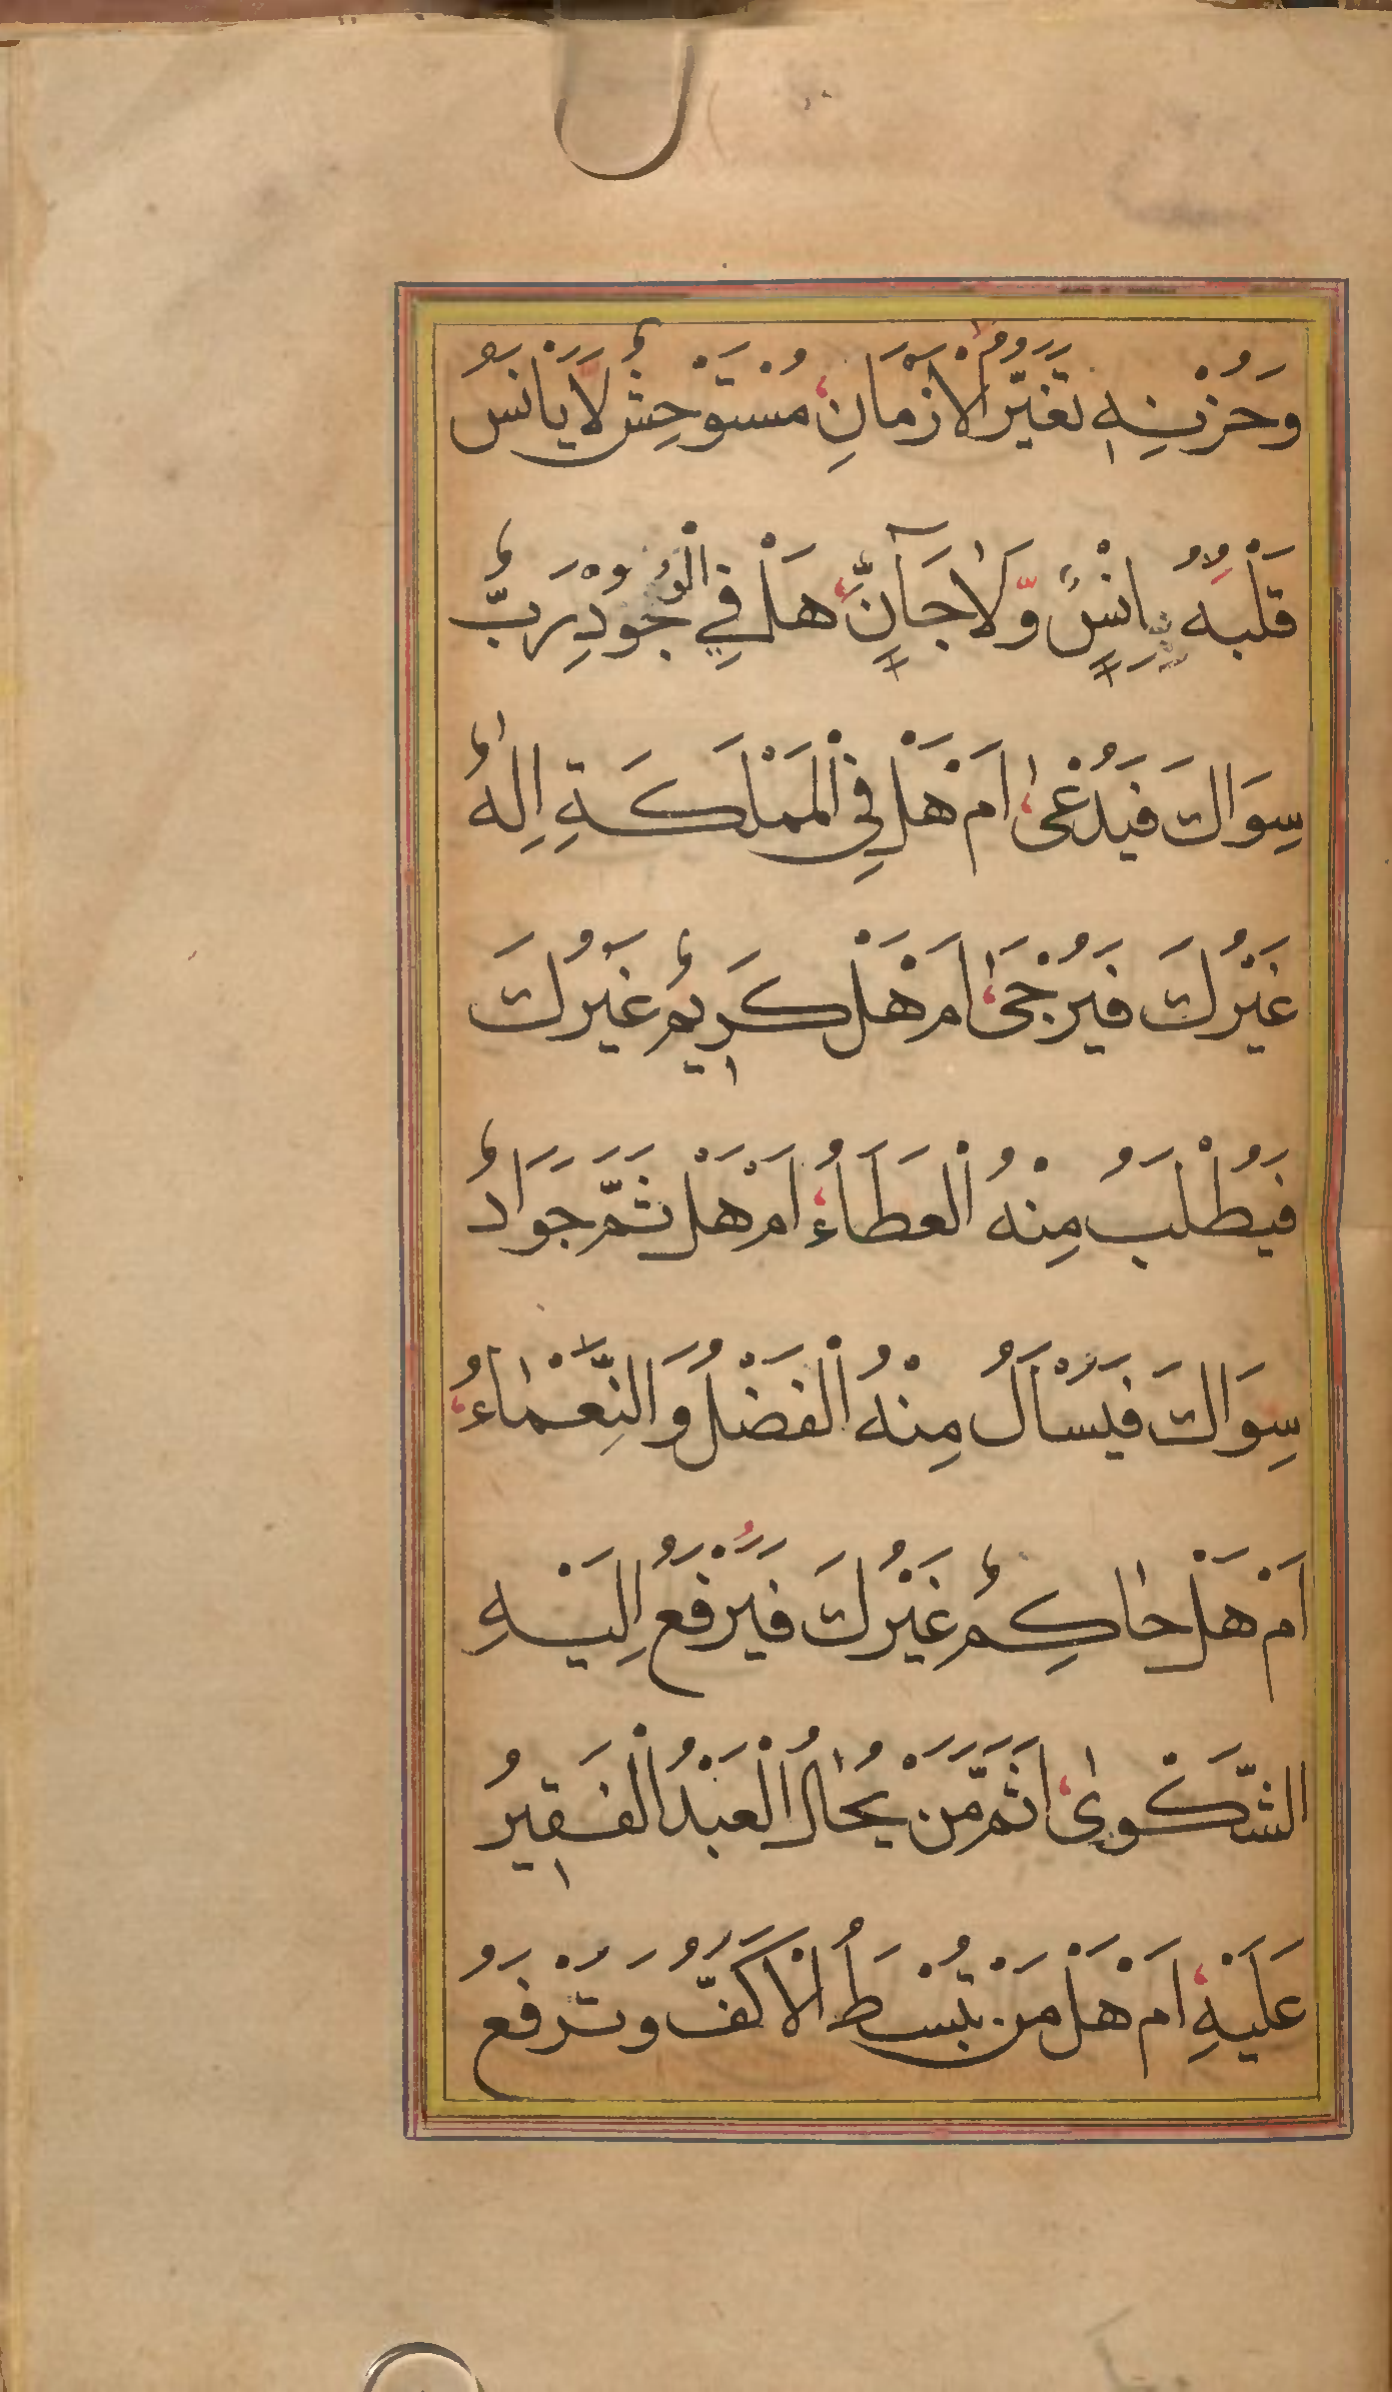 وَحُزْنِهِ تَغَيُّرُ الْاَزْمَانِ مُسْتَوْحِشٌ لَا يَانَسُ
قَلْبُهُ بِاِنْسٍ وَّلَا جَآنٍّ هَلْ فِي الْوُجُوْدِ رَبٌّ
سِوَاكَ فَيُدْعٰى اَمْ هَلْ فِي الْمَمْلَكَةِ اِلٰهٌ
غَيْرُكَ فَيُرْجٰى اَمْ هَلْ كَرِيمٌ غَيْرُكَ
فَيُطْلَبُ مِنْهُ الْعَطَاءُ اَمْ هَلْ ثَمَّ جَوَادٌ
سِوَاكَ فَيُسْأَلُ مِنْهُ الْفَضْلُ وَالنَّعْمَاءُ
اَمْ هَلْ حَاكِمٌ غَيْرُكَ فَيُرْفَعُ اِلَيْهِ
الشَّكْوٰى اَثَمَّ مَنْ يُحَالُ الْعَبْدُ الْفَقِيرُ
عَلَيْهِ اَمْ هَلْ مَنْ تُبْسَطُ الْاَكُفُّ وَتُرْفَعُ